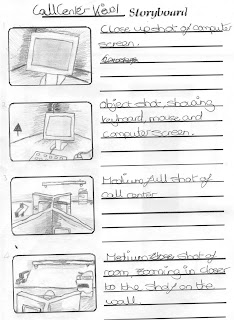 Call Center Visual Storyboard
Close up shot of computer
screen.
Object shot, showing
keyboard, mouse and
computer screen.
Medium/full shot of
call center
Medium shot of
room, zooming in closer
to the shot on the
wall.